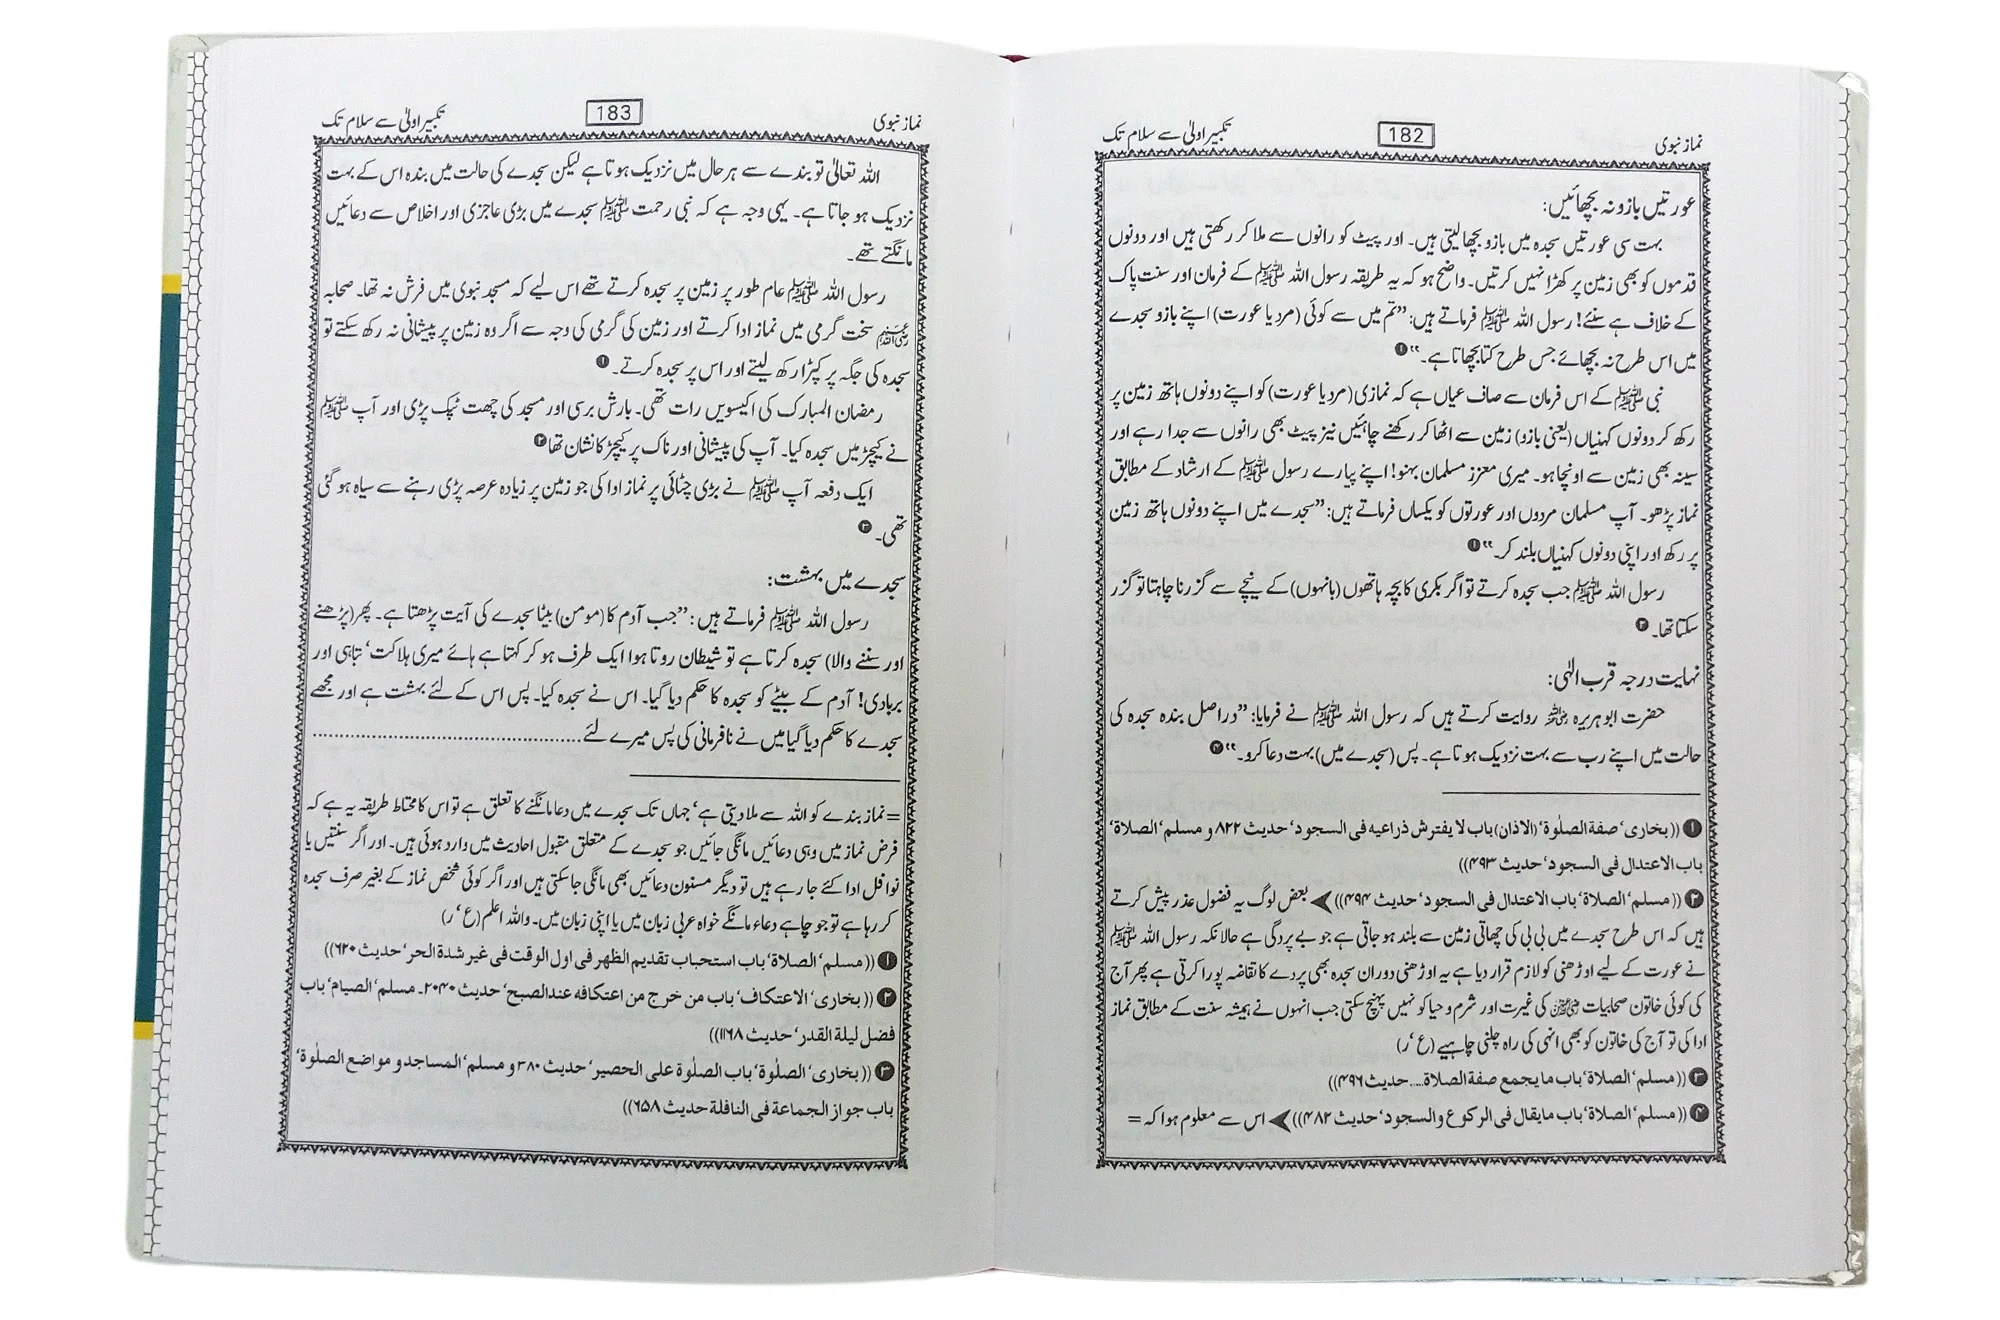 نماز نبوی
182
تکبیر اولیٰ سے سلام تک
عورتیں بازو نہ بچھائیں:
بہت سی عورتیں سجدہ میں بازو بچھا لیتی ہیں۔ اور پیٹ کو رانوں سے ملا کر رکھتی ہیں اور دونوں
قدموں کو بھی زمین پر کھڑا نہیں کرتیں۔ واضح ہو کہ یہ طریقہ رسول اللہ ﷺ کے فرمان اور سنت پاک
کے خلاف ہے سنئے! رسول اللہ ﷺ فرماتے ہیں: ”تم میں سے کوئی (مرد یا عورت) اپنے بازو سجدے
میں اس طرح نہ بچھائے جس طرح کتا بچھاتا ہے۔“ ❶
نبی ﷺ کے اس فرمان سے صاف عیاں ہے کہ نمازی (مرد یا عورت) کو اپنے دونوں ہاتھ زمین پر
رکھ کر دونوں کہنیاں (یعنی بازو) زمین سے اٹھا کر رکھنے چاہئیں نیز پیٹ بھی رانوں سے جدا رہے اور
سینہ بھی زمین سے اونچا ہو۔ میری معزز مسلمان بہنو! اپنے پیارے رسول ﷺ کے ارشاد کے مطابق
نماز پڑھو۔ آپ مسلمان مردوں اور عورتوں کو یکساں فرماتے ہیں: ”سجدے میں اپنے دونوں ہاتھ زمین
پر رکھ اور اپنی دونوں کہنیاں بلند کر۔“ ❶
رسول اللہ ﷺ جب سجدہ کرتے تو اگر بکری کا بچہ ہاتھوں (بانہوں) کے نیچے سے گزرنا چاہتا تو گزر
سکتا تھا۔ ❸
نہایت درجہ قرب الٰہی:
حضرت ابو ہریرہ رضی اللہ عنہ روایت کرتے ہیں کہ رسول اللہ ﷺ نے فرمایا: ”دراصل بندہ سجدہ کی
حالت میں اپنے رب سے بہت نزدیک ہوتا ہے۔ پس (سجدے میں) بہت دعا کرو۔“ ❹
❶ ((بخاری‘ صفة الصلٰوة‘ (الاذان) باب لا یفترش ذراعیه فی السجود‘ حدیث ۸۲۲ و مسلم ‘الصلاة‘
باب الاعتدال فی السجود‘ حدیث ۴۹۳))
❷ ((مسلم‘ الصلاة‘ باب الاعتدال فی السجود‘ حدیث ۴۹۴)) ➤ بعض لوگ یہ فضول عذر پیش کرتے
ہیں کہ اس طرح سجدے میں بی بی کی چھاتی زمین سے بلند ہو جاتی ہے جو بے پردگی ہے حالانکہ رسول اللہ ﷺ
نے عورت کے لیے اوڑھنی کو لازم قرار دیا ہے یہ اوڑھنی دوران سجدہ بھی پردے کا تقاضہ پورا کرتی ہے پھر آج
کی کوئی خاتون صحابیات رضی اللہ عنہن کی غیرت اور شرم و حیا کو نہیں پہنچ سکتی جب انہوں نے ہمیشہ سنت کے مطابق نماز
ادا کی تو آج کی خاتون کو بھی انہی کی راہ چلنی چاہیے (ع‘ ر)
❸ ((مسلم‘ الصلاة‘ باب ما یجمع صفة الصلاة.... حدیث ۴۹۶))
❹ ((مسلم‘ الصلاة‘ باب ما یقال فی الرکوع والسجود‘ حدیث ۴۸۲)) ➤ اس سے معلوم ہوا کہ =
نماز نبوی
183
تکبیر اولیٰ سے سلام تک
اللہ تعالیٰ تو بندے سے ہر حال میں نزدیک ہوتا ہے لیکن سجدے کی حالت میں بندہ اس کے بہت
نزدیک ہو جاتا ہے۔ یہی وجہ ہے کہ نبی رحمت ﷺ سجدے میں بڑی عاجزی اور اخلاص سے دعائیں
مانگتے تھے۔
رسول اللہ ﷺ عام طور پر زمین پر سجدہ کرتے تھے اس لیے کہ مسجد نبوی میں فرش نہ تھا۔ صحابہ
رضی اللہ عنہم سخت گرمی میں نماز ادا کرتے اور زمین کی گرمی کی وجہ سے اگر وہ زمین پر پیشانی نہ رکھ سکتے تو
سجدہ کی جگہ پر کپڑا رکھ لیتے اور اس پر سجدہ کرتے۔ ❶
رمضان المبارک کی اکیسویں رات تھی۔ بارش برسی اور مسجد کی چھت ٹپک پڑی اور آپ ﷺ
نے کیچڑ میں سجدہ کیا۔ آپ کی پیشانی اور ناک پر کیچڑ کا نشان تھا ❷
ایک دفعہ آپ ﷺ نے بڑی چٹائی پر نماز ادا کی جو زمین پر زیادہ عرصہ پڑی رہنے سے سیاہ ہو گئی
تھی۔ ❸
سجدے میں بہشت:
رسول اللہ ﷺ فرماتے ہیں: ”جب آدم کا (مومن) بیٹا سجدے کی آیت پڑھتا ہے۔ پھر (پڑھنے
اور سننے والا) سجدہ کرتا ہے تو شیطان روتا ہوا ایک طرف ہو کر کہتا ہے ہائے میری ہلاکت‘ تباہی اور
بربادی! آدم کے بیٹے کو سجدہ کا حکم دیا گیا۔ اس نے سجدہ کیا۔ پس اس کے لئے بہشت ہے اور مجھے
سجدے کا حکم دیا گیا میں نے نافرمانی کی پس میرے لئے..............................................
= نماز بندے کو اللہ سے ملا دیتی ہے‘ جہاں تک سجدے میں دعا مانگنے کا تعلق ہے تو اس کا محتاط طریقہ یہ ہے کہ
فرض نماز میں وہی دعائیں مانگی جائیں جو سجدے کے متعلق مقبول احادیث میں وارد ہوئی ہیں۔ اور اگر سنتیں یا
نوافل ادا کئے جا رہے ہیں تو دیگر مسنون دعائیں بھی مانگی جا سکتی ہیں اور اگر کوئی شخص نماز کے بغیر صرف سجدہ
کر رہا ہے تو جو چاہے دعاء مانگے خواہ عربی زبان میں یا اپنی زبان میں۔ واللہ اعلم (ع‘ ر)
❶ ((مسلم‘ الصلاة‘ باب استحباب تقدیم الظهر فی اول الوقت فی غیر شدة الحر‘ حدیث ۶۲۰))
❷ ((بخاری‘ الاعتکاف‘ باب من خرج من اعتکافه عند الصبح‘ حدیث ۲۰۴۰۔ مسلم‘ الصیام‘ باب
فضل لیلة القدر‘ حدیث ۱۱۶۸))
❸ ((بخاری‘ الصلٰوة‘ باب الصلٰوة علی الحصیر‘ حدیث ۳۸۰ و مسلم‘ المساجد و مواضع الصلٰوة‘
باب جواز الجماعة فی النافلة حدیث ۶۵۸))